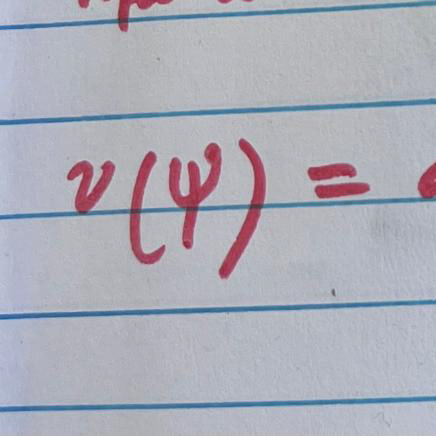 v(ψ) =